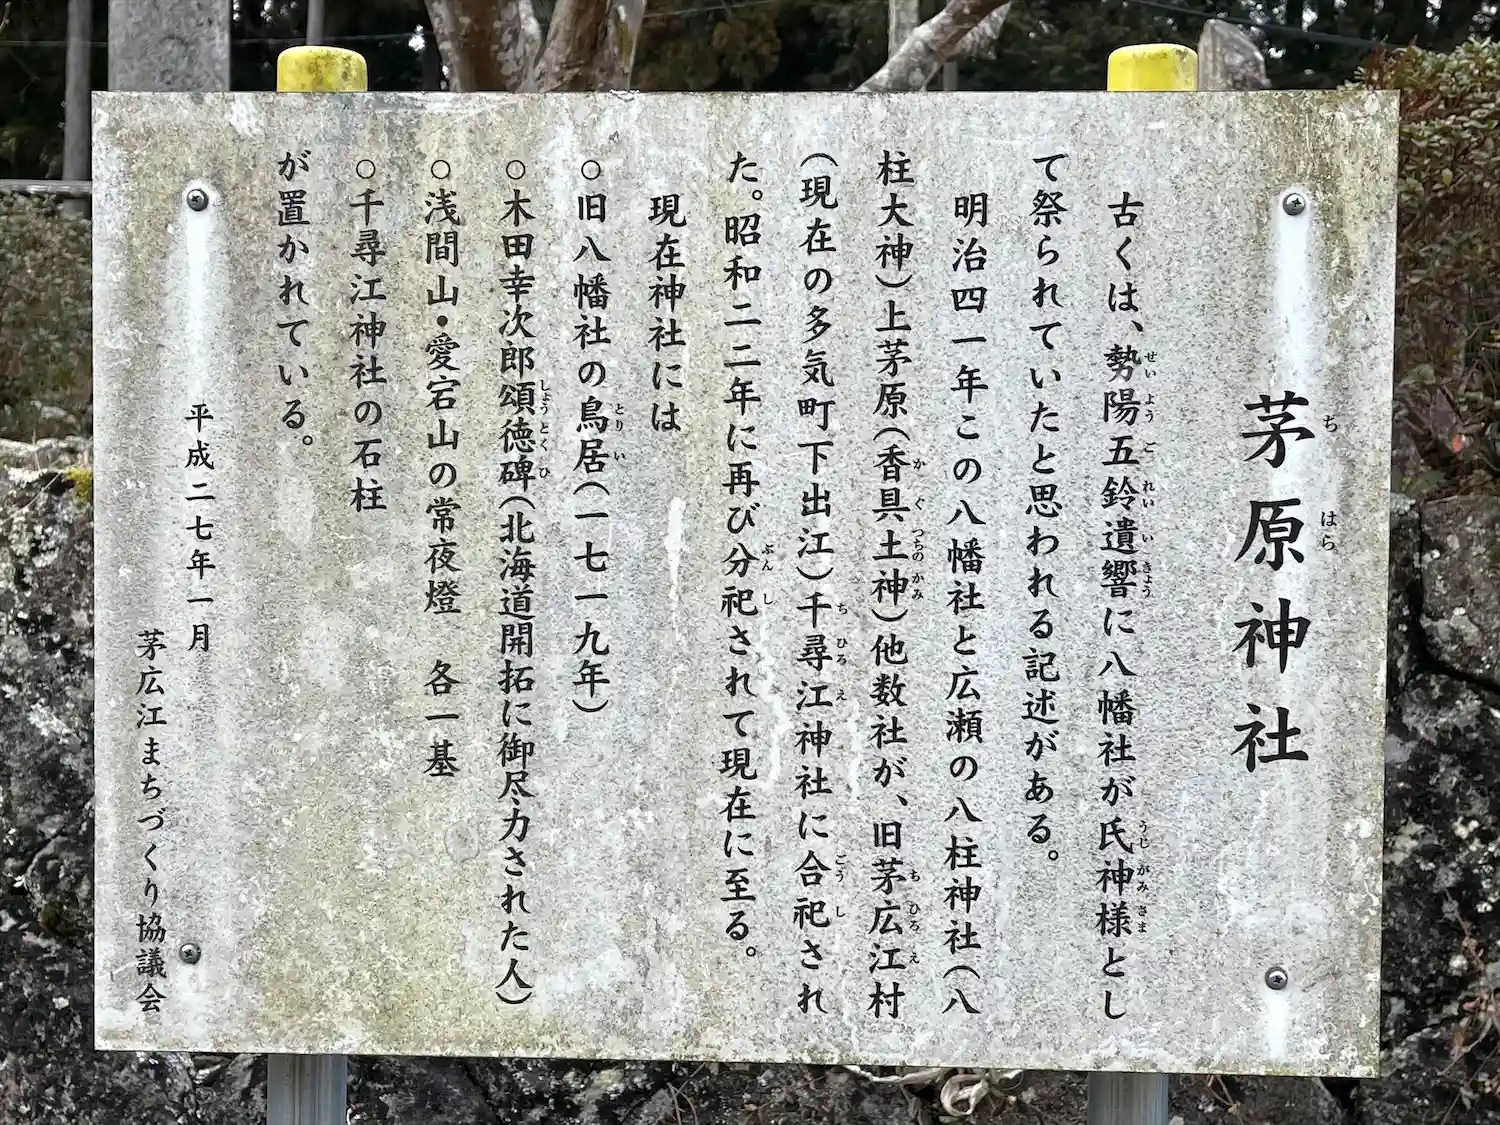 茅原神社
古くは、勢陽五鈴遺響に八幡社が氏神様とし
て祭られていたと思われる記述がある。
明治四一年この八幡社と広瀬の八柱神社（八
柱大神）上茅原（香具土神）他数社が、旧茅広江村
（現在の多気町下出江）千尋江神社に合祀され
た。昭和二二年に再び分祀されて現在に至る。
現在神社には
○旧八幡社の鳥居（一七一九年）
○木田幸次郎頌徳碑（北海道開拓に御尽力された人）
○浅間山・愛宕山の常夜燈　各一基
○千尋江神社の石柱
が置かれている。
平成二七年一月
茅広江まちづくり協議会